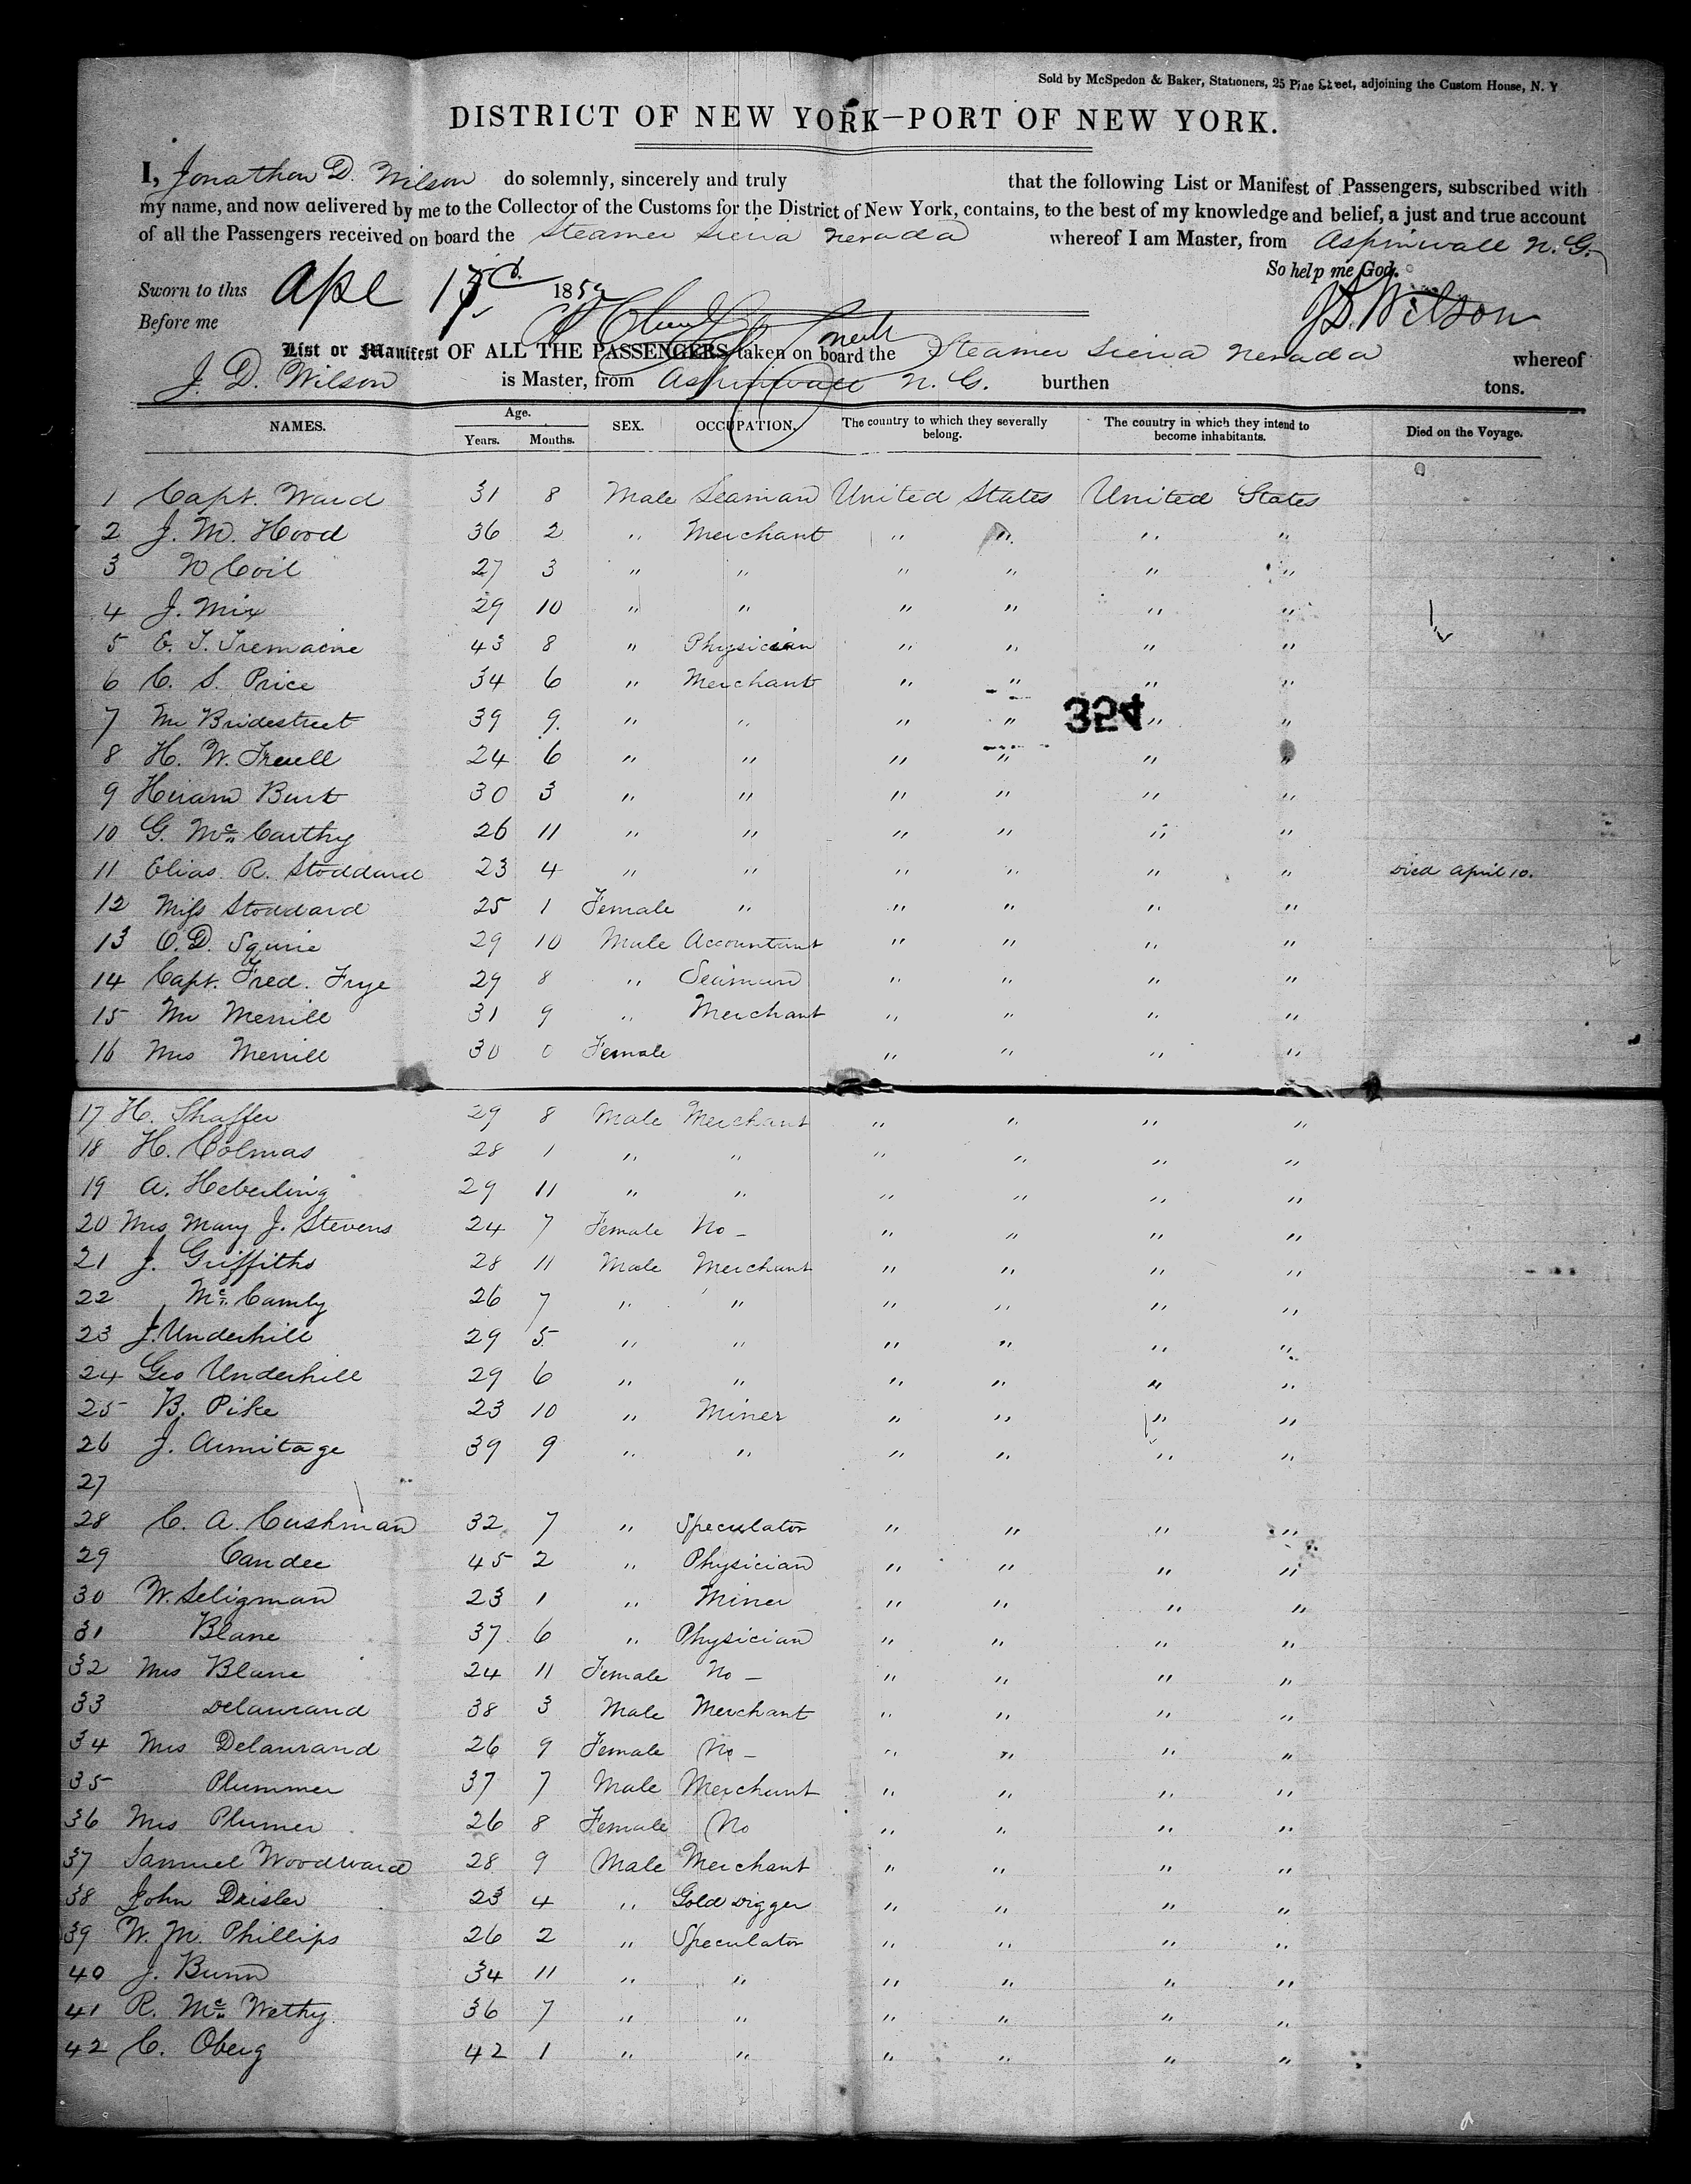 Sold by McSpedon & Baker, Stationers, 25 Pine Street, adjoining the Custom House, N. Y
DISTRICT OF NEW YORK—PORT OF NEW YORK.
I, Jonathan D. Wilson do solemnly, sincerely and truly that the following List or Manifest of Passengers, subscribed with
my name, and now delivered by me to the Collector of the Customs for the District of New York, contains, to the best of my knowledge and belief, a just and true account
of all the Passengers received on board the Steamer Sierra Nevada whereof I am Master, from Aspinwall N. G.
So help me God.
Sworn to this Apl 185
Before me J D. Wilson
List or Manifest OF ALL THE PASSENGERS taken on board the Steamer Sierra Nevada whereof
J. D. Wilson is Master, from Aspinwall N. G. burthen tons.
NAMES. Age. Years. Months. SEX. OCCUPATION. The country to which they severally belong. The country in which they intend to become inhabitants. Died on the Voyage.
1 Capt. Ward 31 8 Male Seaman United States United States
2 J. M. Hood 36 2 " Merchant " " " "
3 Coil 27 3 " " " " " "
4 J. Mix 29 10 " " " " " "
5 E. T. Tremaine 43 8 " Physician " " " "
6 C. S. Price 34 6 " Merchant " " " "
324
7 Mr Bridestreet 39 9. " " " " " "
8 H. W. 24 6 " " " " " "
9 Hiram Burt 30 3 " " " " " "
10 G. Mc Carthy 26 11 " " " " " "
11 Elias R. Stoddard 23 4 " " " " " " Died April 10.
12 Miss Stoddard 25 1 Female " " " " "
13 O. D. Squire 29 10 Male Accountant " " " "
14 Capt. Fred. Frye 29 8 " Seaman " " " "
15 Mr Merrill 31 9 " Merchant " " " "
16 Mrs Merrill 30 0 Female " " " "
17 H. Shaffer 29 8 Male Merchant " " " "
18 H. Colmas 28 1 " " " " " "
19 A. Heberling 29 11 " " " " " "
20 Mrs Mary J. Stevens 24 7 Female No - " " " "
21 J. Griffiths 28 11 Male Merchant " " " "
22 Mc. Camly 26 7 " " " " " "
23 J. Underhill 29 5. " " " " " "
24 Geo Underhill 29 6 " " " " " "
25 B. Pike 23 10 " Miner " " " "
26 J. Armitage 39 9 " " " " " "
27
28 C. A. Cushman 32 7 " Speculator " " " "
29 Candee 45 2 " Physician " " " "
30 W. Seligman 23 1 " Miner " " " "
31 Blane 37 6 " Physician " " " "
32 Mrs Blane 24 11 Female No - " " " "
33 Delaurand 38 3 Male Merchant " " " "
34 Mrs Delaurand 26 9 Female No - " " " "
35 Plummer 37 7 Male Merchant " " " "
36 Mrs Plumer 26 8 Female No " " " "
37 Samuel Woodward 28 9 Male Merchant " " " "
38 John Deisler 23 4 " Gold Digger " " " "
39 W. M. Phillips 26 2 " Speculator " " " "
40 J. Bunn 34 11 " " " " " "
41 R. Mc Wethy 36 7 " " " " " "
42 C. Oberg 42 1 " " " " " "